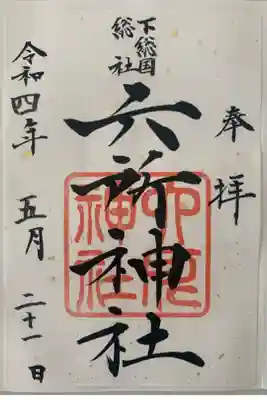 奉拝
下総国
総社
六所神社
六所
神社
令和四年 五月 二十一日